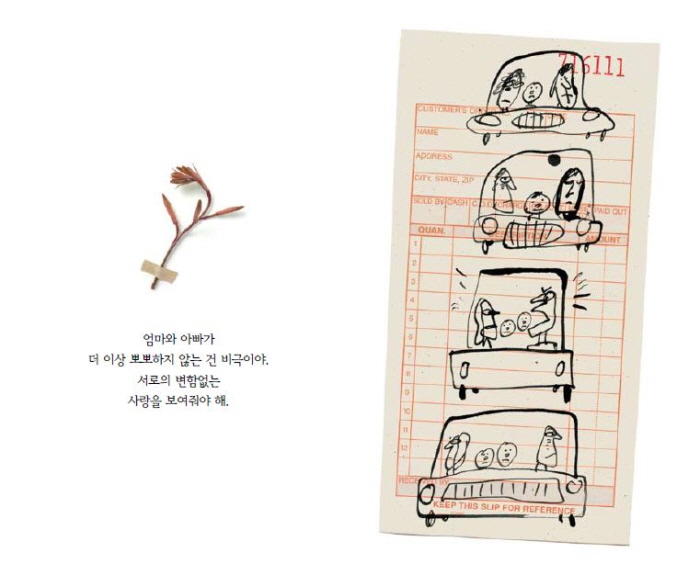 엄마와 아빠가
더 이상 뽀뽀하지 않는 건 비극이야.
서로의 변함없는
사랑을 보여줘야 해.
716111
CUSTOMER'S
NAME
ADDRESS
CITY, STATE, ZIP
SOLD BY CASH PAID OUT
QUAN. AMOUNT
1
2
3
4
5
6
7
8
9
10
11
12
RECEIVED BY
KEEP THIS SLIP FOR REFERENCE